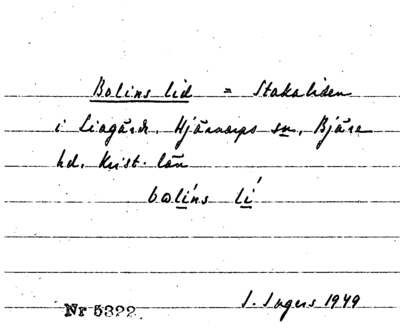 Bolins lid = Stakaliden
i Liagärde, Hjärnarps sn, Bjäre
hd, Krist. län
bωlíns lí
Nr 5322. S. Ingers 1949